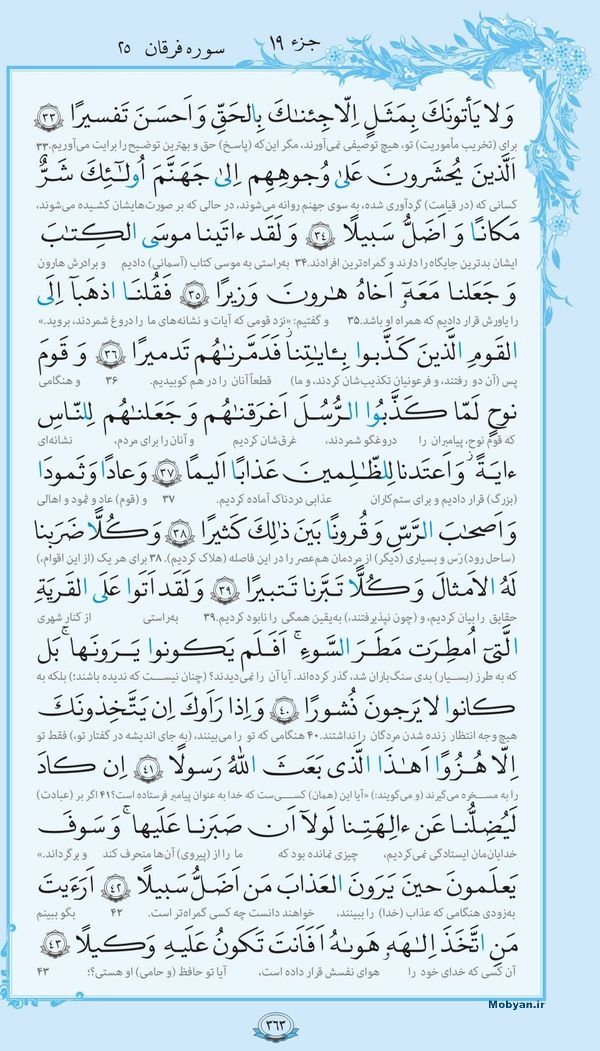 جزء ۱۹
سوره فرقان ۲۵
وَلا يَأتونَكَ بِمَثَلٍ اِلّا جِئناكَ بِالحَقِّ وَ اَحسَنَ تَفسيرًا ﴿۳۳﴾
برای (تخریب مأموریت) تو، هیچ توصیفی نمی‌آورند، مگر این‌که (پاسخ) حق و بهترین توضیح را برایت می‌آوریم.۳۳
اَلَّذينَ يُحشَرونَ عَلىٰ وُجوهِهِم اِلىٰ جَهَنَّمَ اُولٰئِكَ شَرٌّ
کسانی که (در قیامت) گردآوری شده، به سوی جهنم روانه می‌شوند، در حالی که بر صورت‌هایشان کشیده می‌شوند،
مَكانًا وَ اَضَلُّ سَبيلًا ﴿۳۴﴾ وَ لَقَد ءاتَينا موسَى الكِتٰبَ
ایشان بدترین جایگاه را دارند و گمراه‌ترین افرادند.۳۴ به‌راستی به موسی کتاب (آسمانی) دادیم و برادرش هارون
وَ جَعَلنا مَعَهٗ اَخاهُ هٰرونَ وَزيرًا ﴿۳۵﴾ فَقُلنَا اذهَبا اِلَى
را یاورش قرار دادیم که همراه او باشد.۳۵ و گفتیم: «نزد قومی که آیات و نشانه‌های ما را دروغ شمردند، بروید.»
القَومِ الَّذينَ كَذَّبوا بِـٔايٰتِنا فَدَمَّرنٰهُم تَدميرًا ﴿۳۶﴾ وَ قَومَ
پس (آن دو رفتند، و فرعونیان تکذیب‌شان کردند، و ما) قطعاً آنان را در هم کوبیدیم. ۳۶ و هنگامی
نوحٍ لَمّا كَذَّبُوا الرُّسُلَ اَغرَقنٰهُم وَ جَعَلنٰهُم لِلنّاسِ
که قوم نوح، پیامبران را دروغگو شمردند، غرق‌شان کردیم و آنان را برای مردم، نشانه‌ای
ءايَةً وَ اَعتَدنا لِلظّٰلِمينَ عَذابًا اَليمًا ﴿۳۷﴾ وَ عادًا وَ ثَمودَا
(بزرگ) قرار دادیم و برای ستم‌کاران عذابی دردناک آماده کردیم. ۳۷ و (قوم) عاد و ثمود و اهالی
وَ اَصحٰبَ الرَّسِّ وَ قُرونًا بَينَ ذٰلِكَ كَثيرًا ﴿۳۸﴾ وَ كُلًّا ضَرَبنا
(ساحل رود) رَس و بسیاری (دیگر) از مردمان هم‌عصر را در این فاصله (هلاک کردیم). ۳۸ برای هر یک (از این اقوام،)
لَهُ الاَمثالَ وَ كُلًّا تَبَّرنا تَتبيرًا ﴿۳۹﴾ وَ لَقَد اَتَوا عَلَى القَريَةِ
حقایق را بیان کردیم، و (چون نپذیرفتند،) به‌یقین همگی را نابود کردیم.۳۹ به‌راستی از کنار شهری
الَّتى اُمطِرَت مَطَرَ السَّوءِ اَفَلَم يَكونوا يَرَونَها بَل
که به طرز (بسیار) بدی سنگ‌باران شد، گذر کرده‌اند. آیا آن را نمی‌دیدند؟ (چنان نیست که ندیده باشند؛) بلکه به
كانوا لا يَرجونَ نُشورًا ﴿۴۰﴾ وَ اِذا رَاَوكَ اِن يَتَّخِذونَكَ
هیچ وجه انتظار زنده شدن مردگان را نداشتند.۴۰ هنگامی که تو را می‌بینند، (به جای اندیشه در گفتار تو،) فقط تو
اِلّا هُزُوًا اَهٰذَا الَّذى بَعَثَ اللّٰهُ رَسولًا ﴿۴۱﴾ اِن كادَ
را به مسخره می‌گیرند (و می‌گویند:) «آیا این (همان) کسی‌ست که خدا به عنوان پیامبر فرستاده است؟۴۱ اگر بر (عبادت)
لَيُضِلُّنا عَن ءالِهَتِنا لَولا اَن صَبَرنا عَلَيها وَ سَوفَ
خدایان‌مان ایستادگی نمی‌کردیم، چیزی نمانده بود که ما را از (پیروی) آن‌ها منحرف کند و برگرداند.»
يَعلَمونَ حينَ يَرَونَ العَذابَ مَن اَضَلُّ سَبيلًا ﴿۴۲﴾ اَرَءَيتَ
به‌زودی هنگامی که عذاب (خدا) را ببینند، خواهند دانست چه کسی گمراه‌تر است. ۴۲ بگو ببینم
مَنِ اتَّخَذَ اِلٰهَهٗ هَوىٰهُ اَفَاَنتَ تَكونُ عَلَيهِ وَكيلًا ﴿۴۳﴾
آن کسی که خدای خود را هوای نفسش قرار داده است، آیا تو حافظ (و حامی) او هستی؟؛ ۴۳
Mobyan.ir
۳۶۳